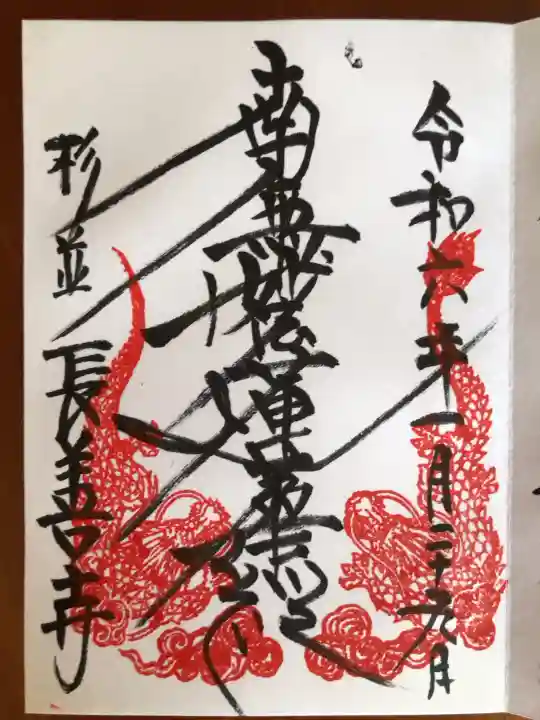 令和六年一月二十九日
南無妙法蓮華経
杉並 長善寺